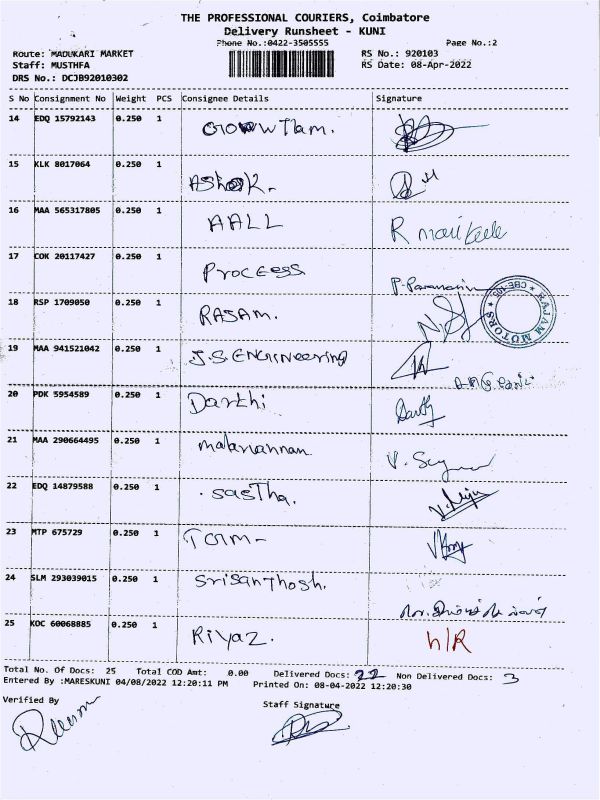 THE PROFESSIONAL COURIERS, Coimbatore
Delivery Runsheet - KUNI
Phone No.:0422-3505555 Page No.:2
Route: MADUKARI MARKET RS No.: 920103
Staff: MUSTHFA RS Date: 08-Apr-2022
DRS No.: DCJB92010302
S No Consignment No Weight PCS Consignee Details Signature
14 EDQ 15792143 0.250 1
15 KLK 8017064 0.250 1 Ashok.
16 MAA 565317805 0.250 1 AALL
17 COK 20117427 0.250 1 Process
18 RSP 1709050 0.250 1 RASAM.
RAJAM MOTORS
19 MAA 941521042 0.250 1 J.S. Engineering
20 PDK 5954589 0.250 1 Darthi
21 MAA 290664495 0.250 1
22 EDQ 14879588 0.250 1 Sastha.
23 MTP 675729 0.250 1
24 SLM 293039015 0.250 1 Srisanthosh.
25 KOC 60068885 0.250 1 Riyaz. h/R
Total No. Of Docs: 25 Total COD Amt: 0.00 Delivered Docs: 22 Non Delivered Docs: 3
Entered By :MARESKUNI 04/08/2022 12:20:11 PM Printed On: 08-04-2022 12:20:30
Verified By Staff Signature